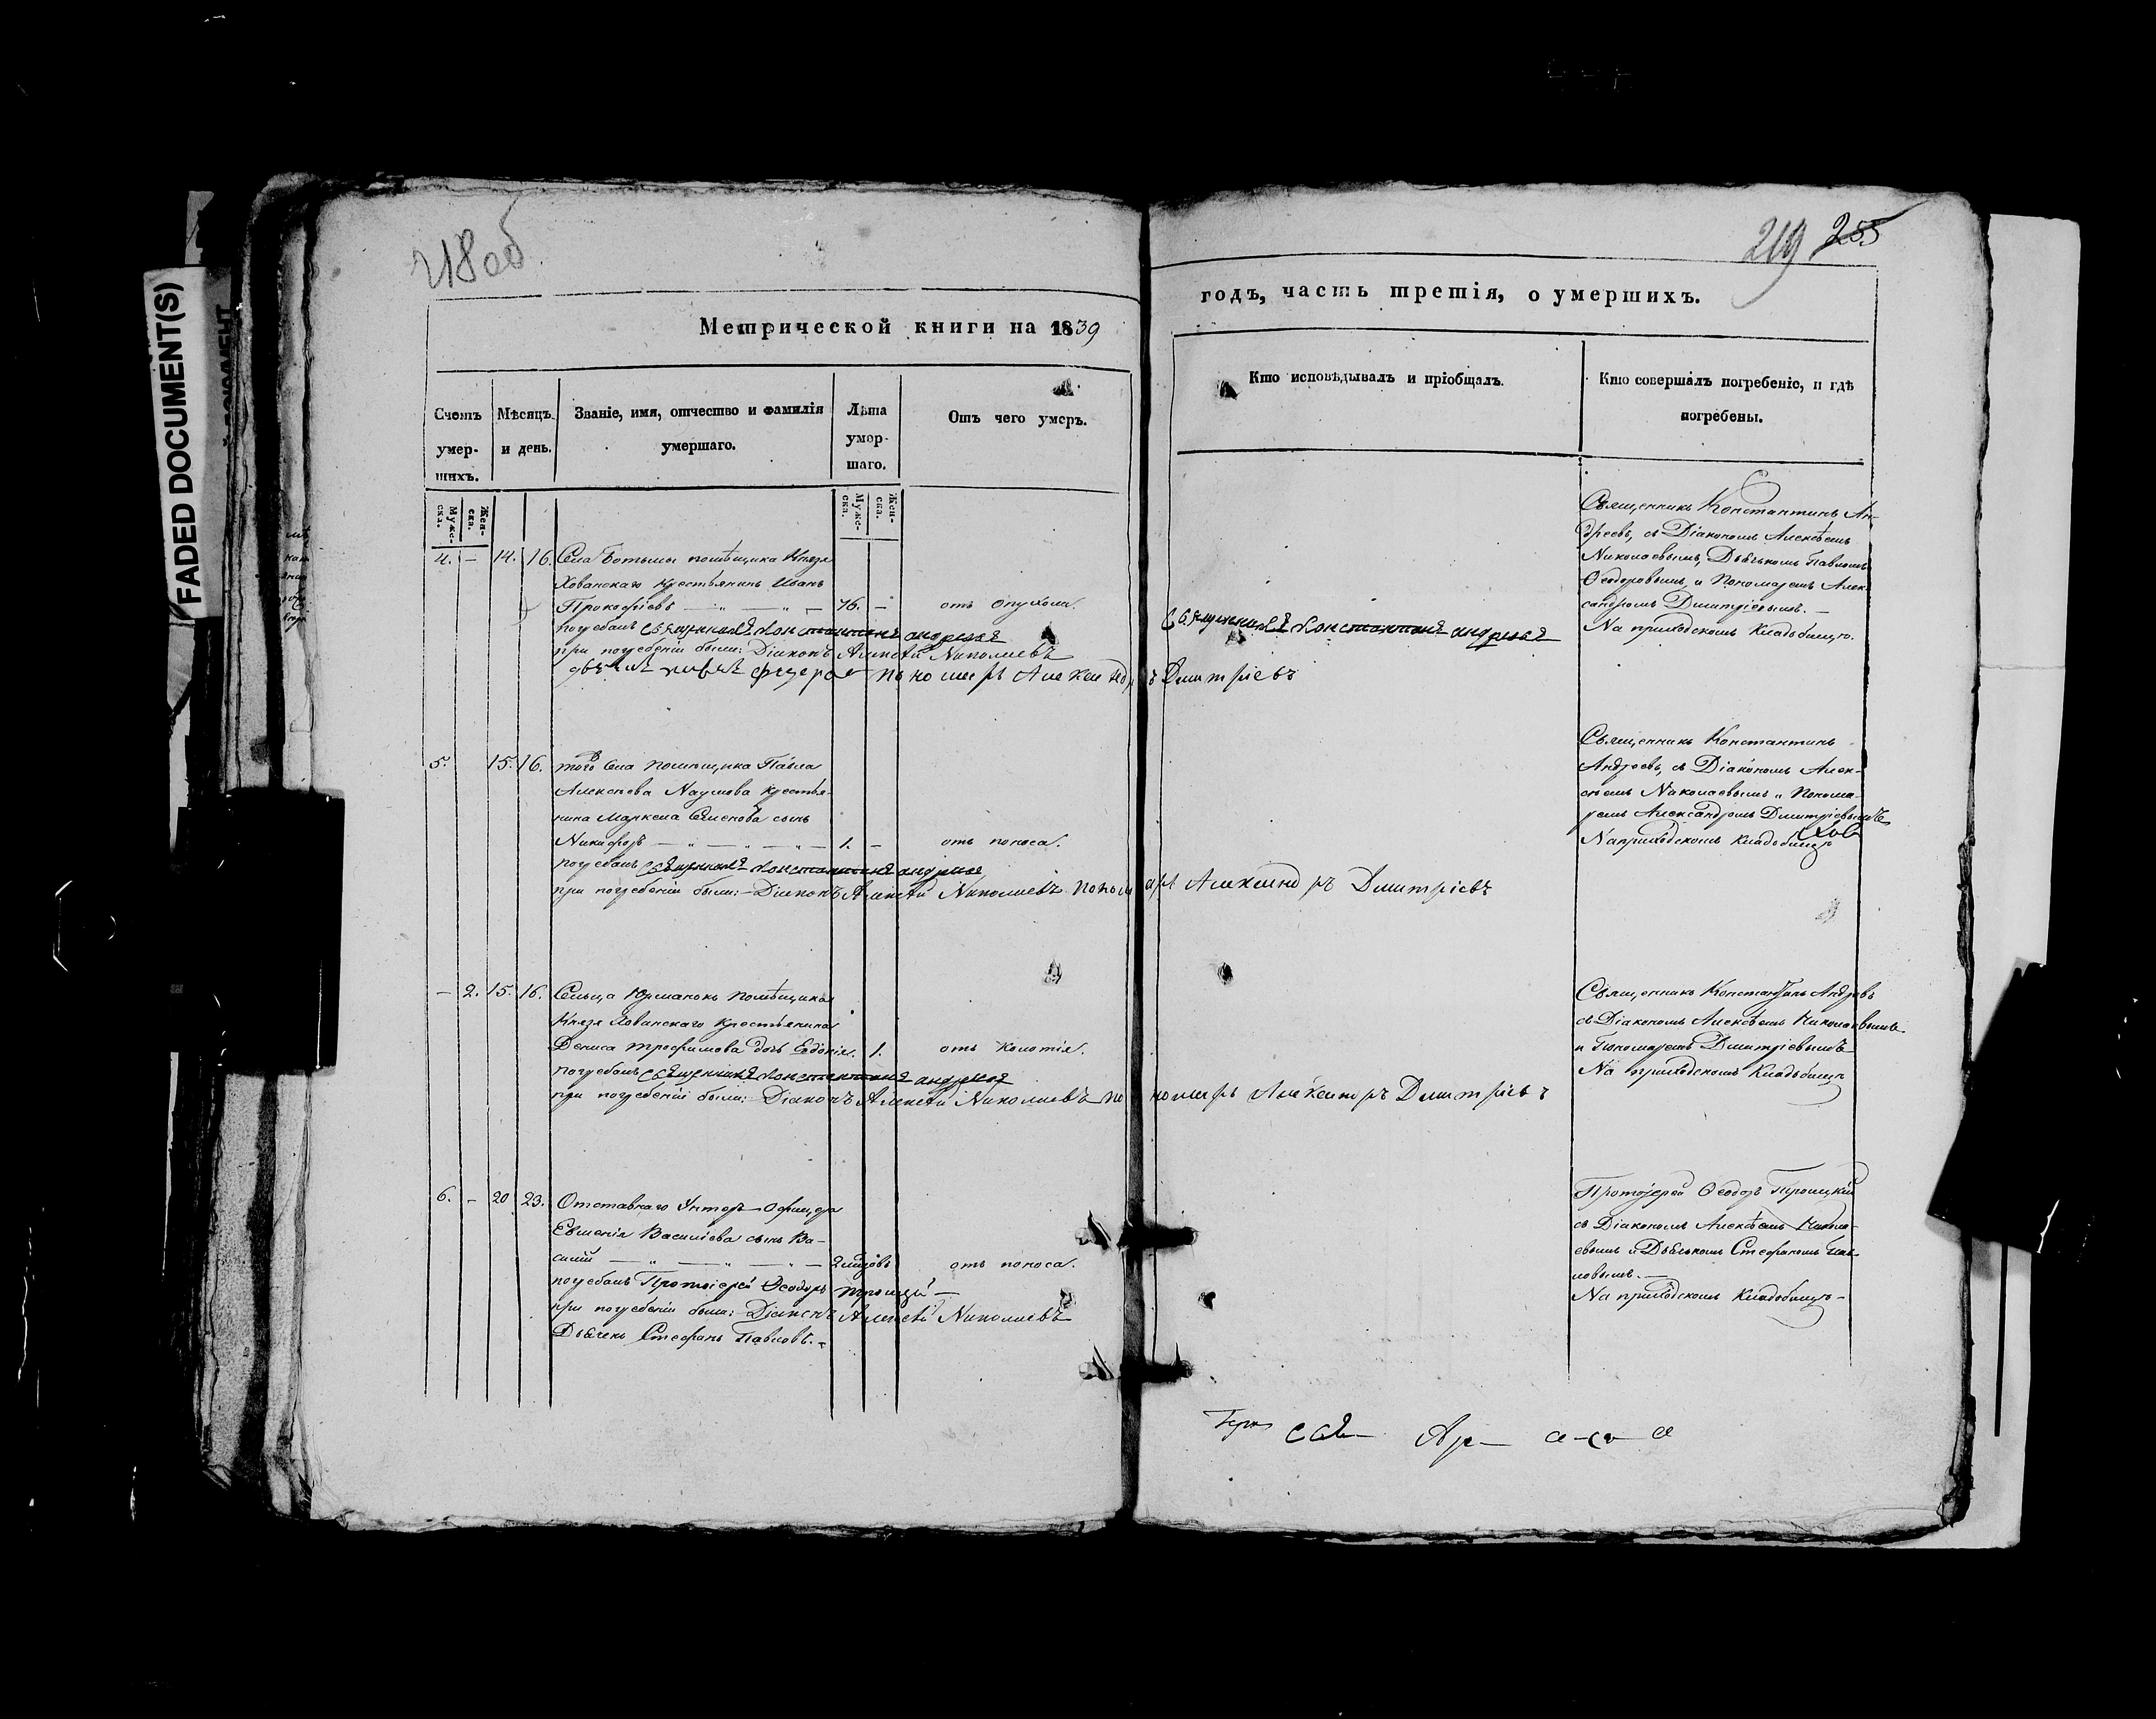 218 об
219 255
FADED DOCUMENT(S)
Метрической книги на 1839
годъ, часть третія, о умершихъ.
Счетъ умершихъ.
Мѣсяцъ и день.
Званіе, имя, отчество и фамилія умершаго.
Лѣта умершаго.
Отъ чего умеръ.
Кто исповѣдывалъ и пріобщалъ.
Кто совершалъ погребеніе, и гдѣ погребены.
Мужеска. Женска.
Мужеска. Женска.
4. – 14. 16. Села Ботьмы помѣщика Князя
Хованскаго крестьянинъ Иванъ
Прокофіевъ — „ — „ — 76. – отъ опухоли.
погребалъ Священникъ Константинъ Андреевъ
при погребеніи были: Діаконъ Алексѣй Николаевъ
пономарь Александръ Дмитріевъ
Священникъ Константинъ Андреевъ
Священникъ Константинъ Ан-
дреевъ, съ Діакономъ Алексѣемъ
Николаевымъ, Дьячькомъ Павломъ
Ѳеодоровымъ, и Пономаремъ Алек-
сандромъ Дмитріевымъ. —
На приходскомъ кладбищѣ.
5. 15. 16. того села помѣщика Павла
Алексѣева Наумова крестья-
нина Маркела Семенова сынъ
Никифоръ — „ — „ — „ — 1. – отъ поноса.
погребалъ Священникъ Константинъ Андреевъ
при погребеніи были: Діаконъ Алексѣй Николаевъ пономарь Александръ Дмитріевъ
Священникъ Константинъ
Андреевъ, съ Діакономъ Алек-
сѣемъ Николаевымъ „ Понома-
ремъ Александромъ Дмитріевымъ
На приходскомъ кладбищѣ
– 2. 15. 16. Сельца Юрманокъ помѣщика
Князя Хованскаго крестьянина
Дениса Трофимова дочь Евдокія. 1. отъ колотія.
погребалъ Священникъ Константинъ Андреевъ
при погребеніи были: Діаконъ Алексѣй Николаевъ пономарь Александръ Дмитріевъ
Священникъ Константинъ Андреевъ
съ Діакономъ Алексѣемъ Николаевымъ
и Пономаремъ Дмитріевымъ
На приходскомъ кладбищѣ
6. – 20 23. Отставнаго Унтеръ-Офицера
Евгенія Василіева сынъ Ва-
силій — „ — „ — „ — отъ поноса.
погребалъ Протоіерей Ѳеодоръ Троицкій —
при погребеніи были: Діаконъ Алексѣй Николаевъ
Дьячекъ Стефанъ Павловъ. –
Протоіерей Ѳеодоръ Троицкій
съ Діакономъ Алексѣемъ Никола-
евымъ и Дьячькомъ Стефаномъ Пав-
ловымъ. —
На приходскомъ кладбищѣ —